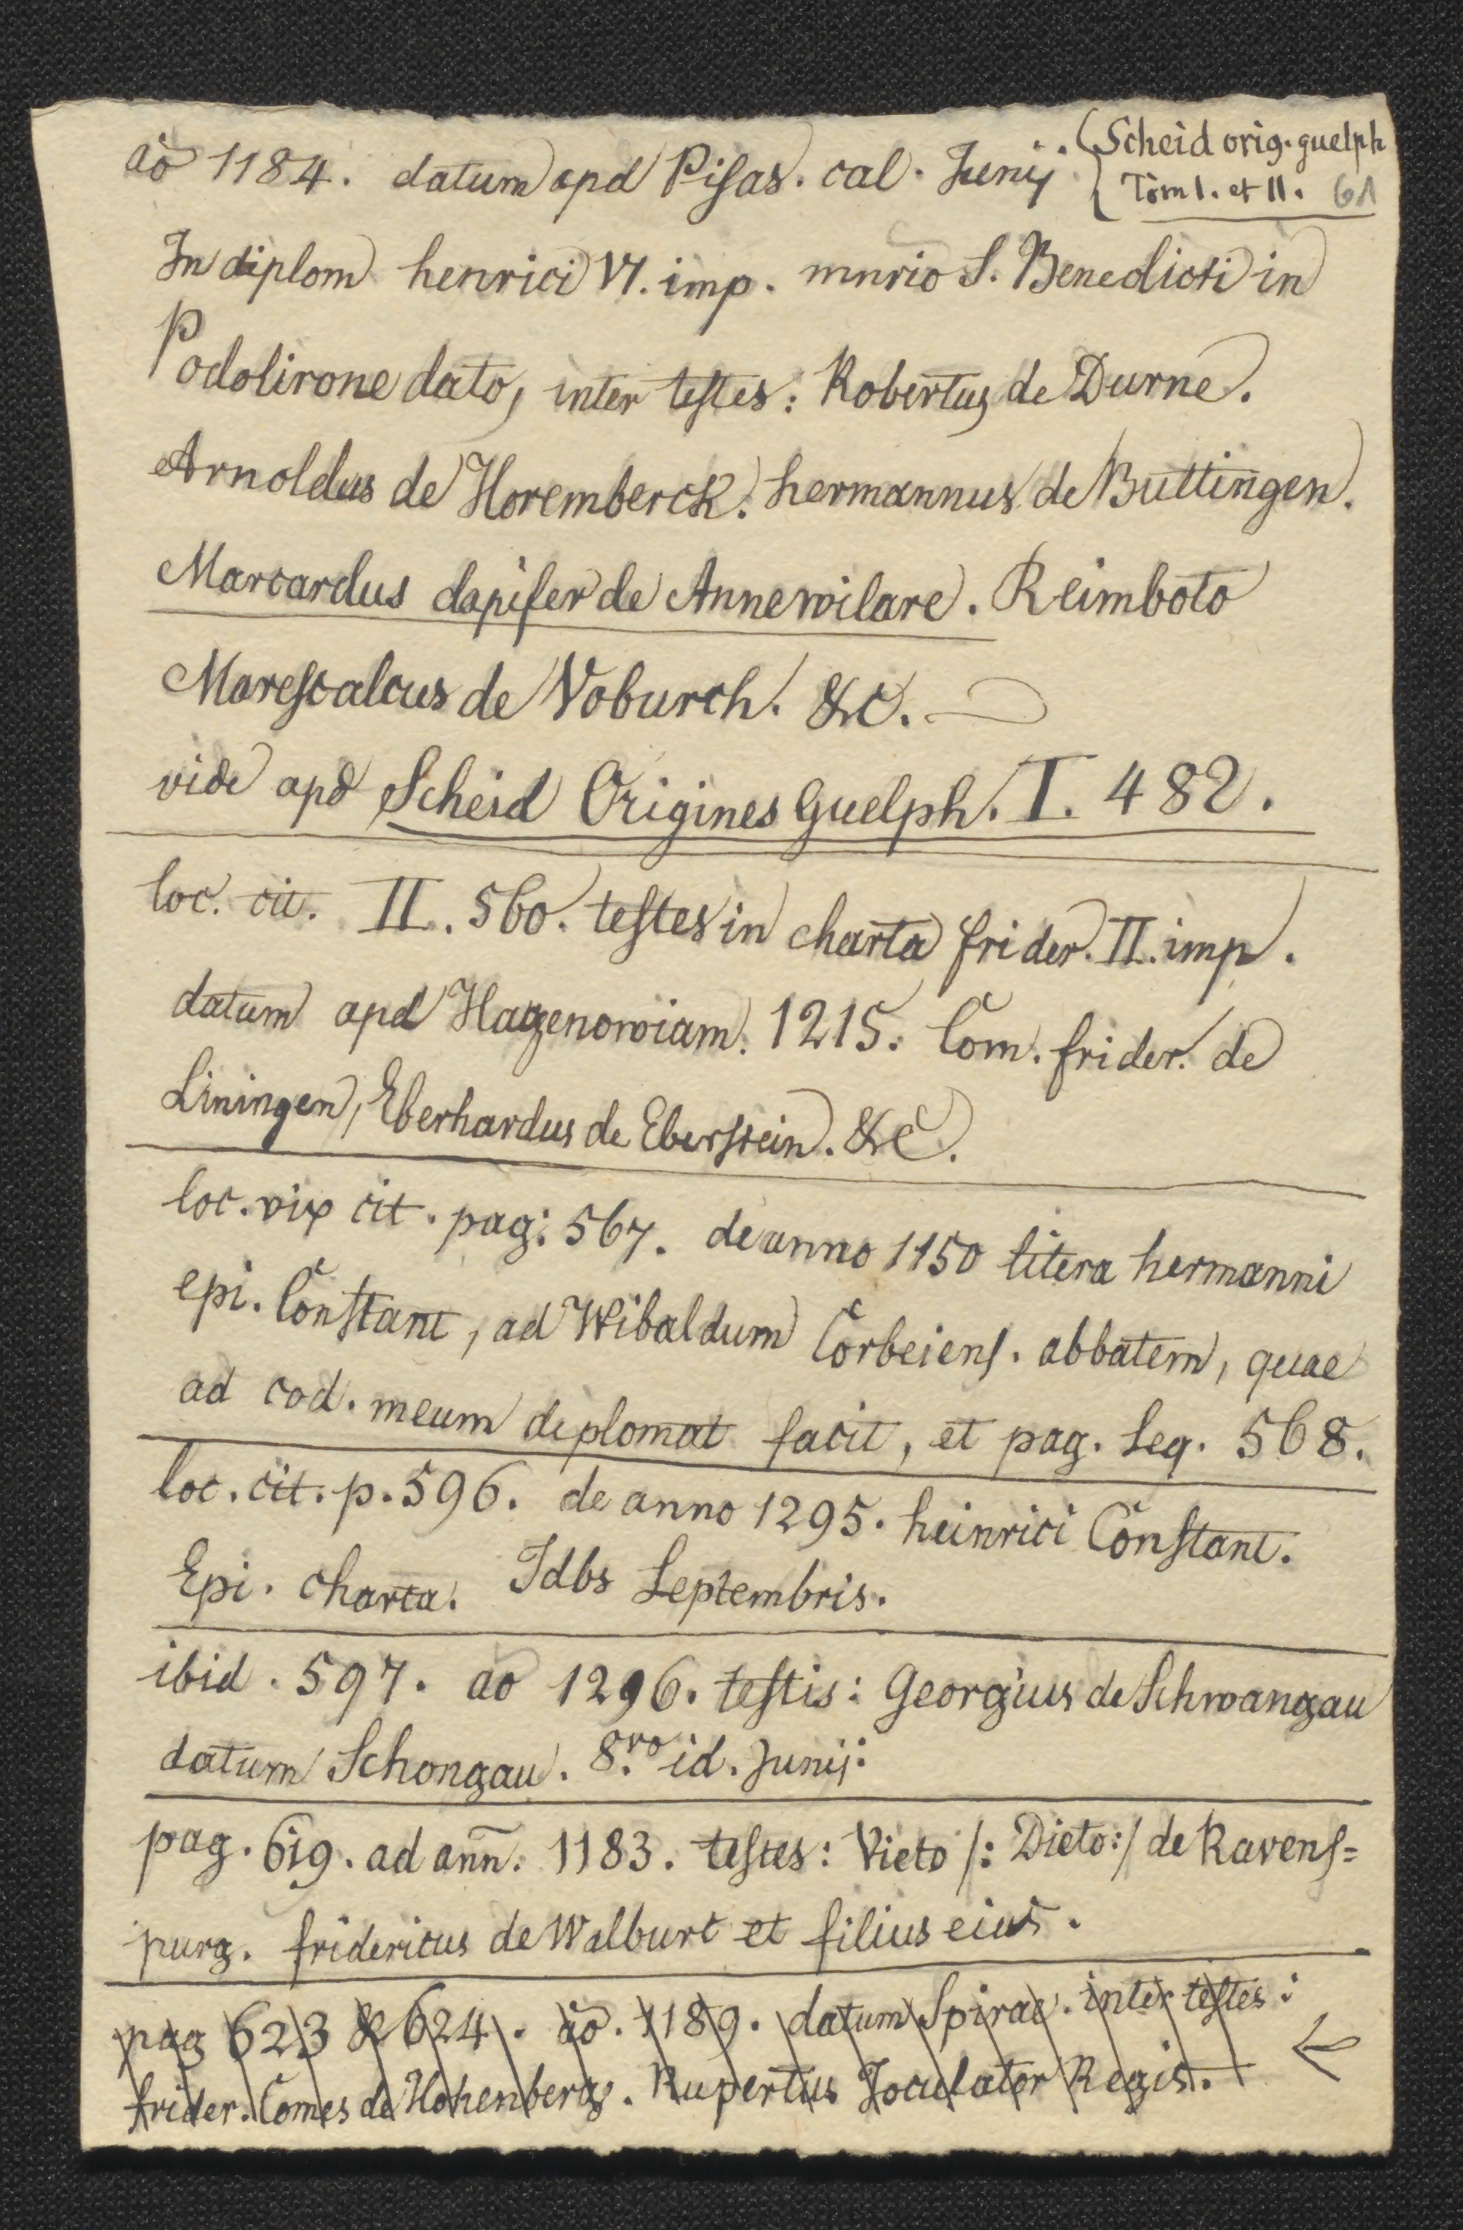 aõ 1184. datum apd Piſas. cal. Junij.
Scheid orig. guelph
Tom I. et II. 61
In diplom henrici VI. imp. mnrio S. Benedicti in
Podolirone dato, inter teſtes: Robertus de Durne.
Arnoldus de Horemberck. hermannus de Buttingen.
Marcardus dapifer de Annewilare. Reimboto
Mareſcalcus de Voburch. &c.
vide apd Scheid Origines Guelph. I. 482.
loc. cit. II. 560. teſtes in charta frider. II. imp.
datum apd Hagenowiam. 1215. Com. frider. de
Liningen, Eberhardus de Eberſtein. &c.
loc. vix cit. pag: 567. de anno 1150 litera hermanni
epi. Conſtant, ad Wibaldum Corbeienſ. abbatem, quae
ad cod. meum diplomat facit, et pag. seq. 568.
loc. cit. p. 596. de anno 1295. heinrici Conſtant.
Epi. charta. Idbs Septembris.
ibid. 597. ao 1296. teſtis: Georgius de Schwangau
datum Schongau. 8.ro id. Junij:
pag. 619. ad añn. 1183. teſtes: Vieto /: Dieto:/ de Ravenſ=
purg. fridericus de Walburc et filius eius.
pag 623 & 624. aõ. 1189. datum Spirae. inter teſtes:
frider. Comes de Hohenberg. Rupertus Joculator Regis.